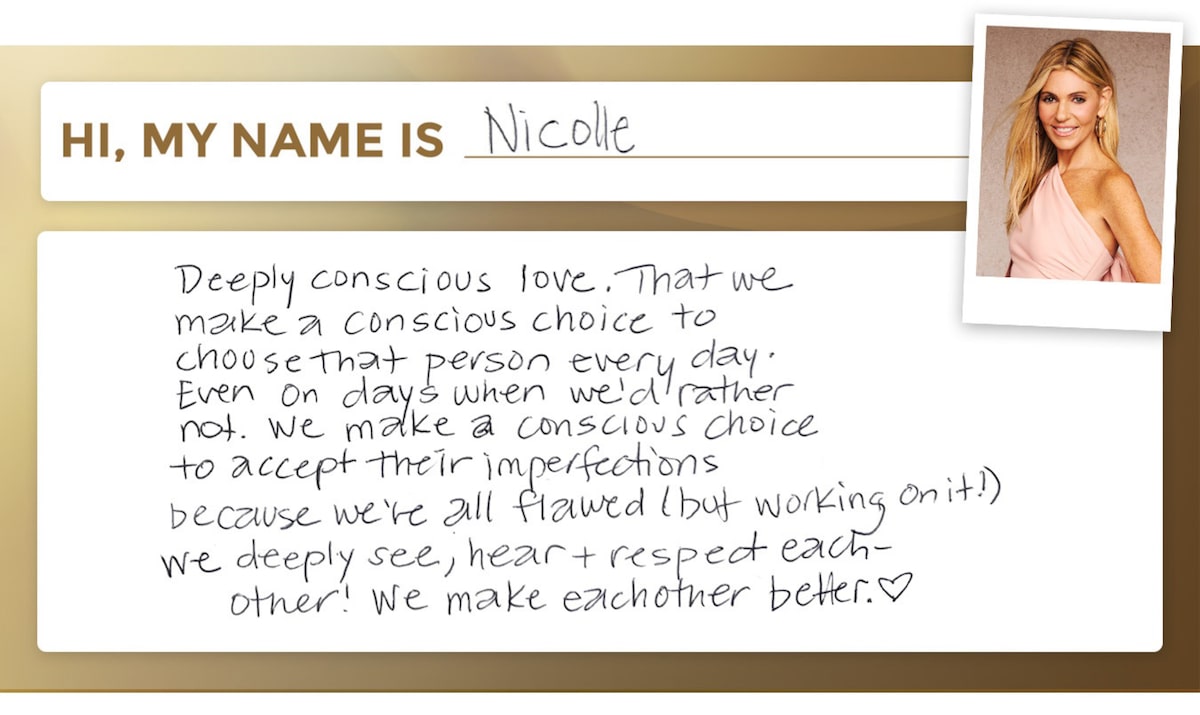 HI, MY NAME IS Nicolle
Deeply conscious love. That we
make a conscious choice to
choose that person every day.
Even on days when we'd rather
not. We make a conscious choice
to accept their imperfections
because we're all flawed (but working on it!)
We deeply see, hear + respect each-
other! We make eachother better.♡